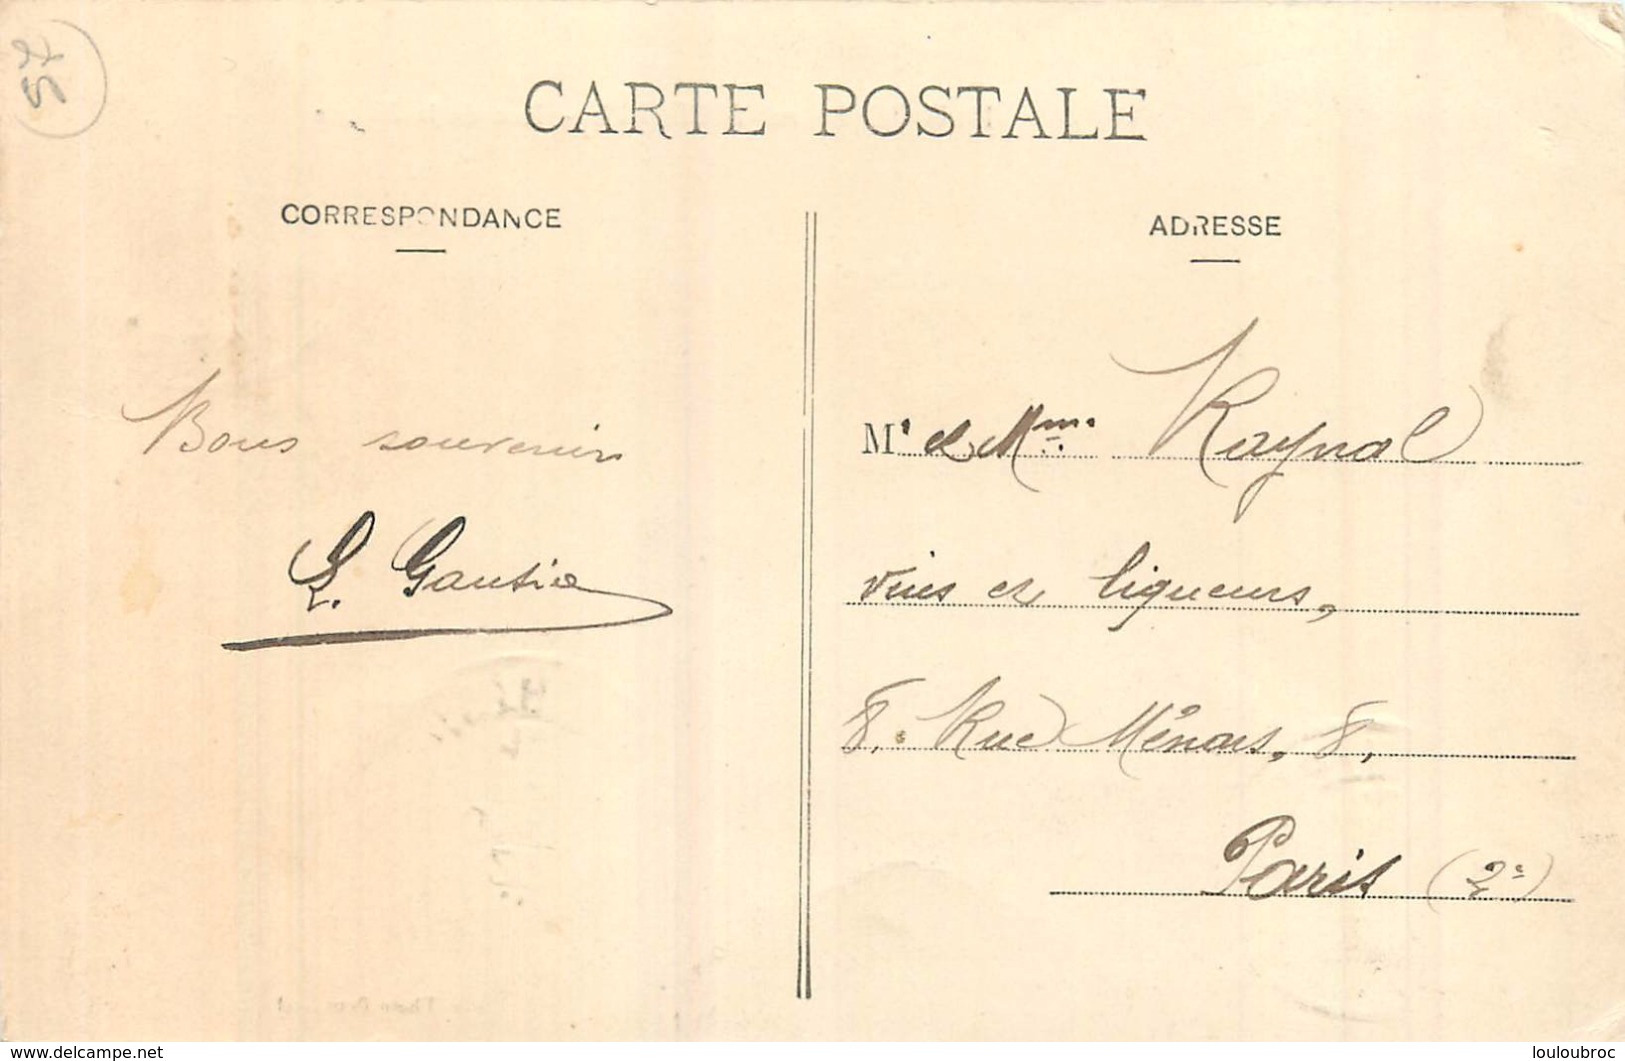 57
CARTE POSTALE
CORRESPONDANCE
ADRESSE
Bons souvenirs
L. Gautier
Mr et Mme Raynal
vins et liqueurs,
8. Rue Ménars, 8,
Paris (2e)
www.delcampe.net
louloubroc